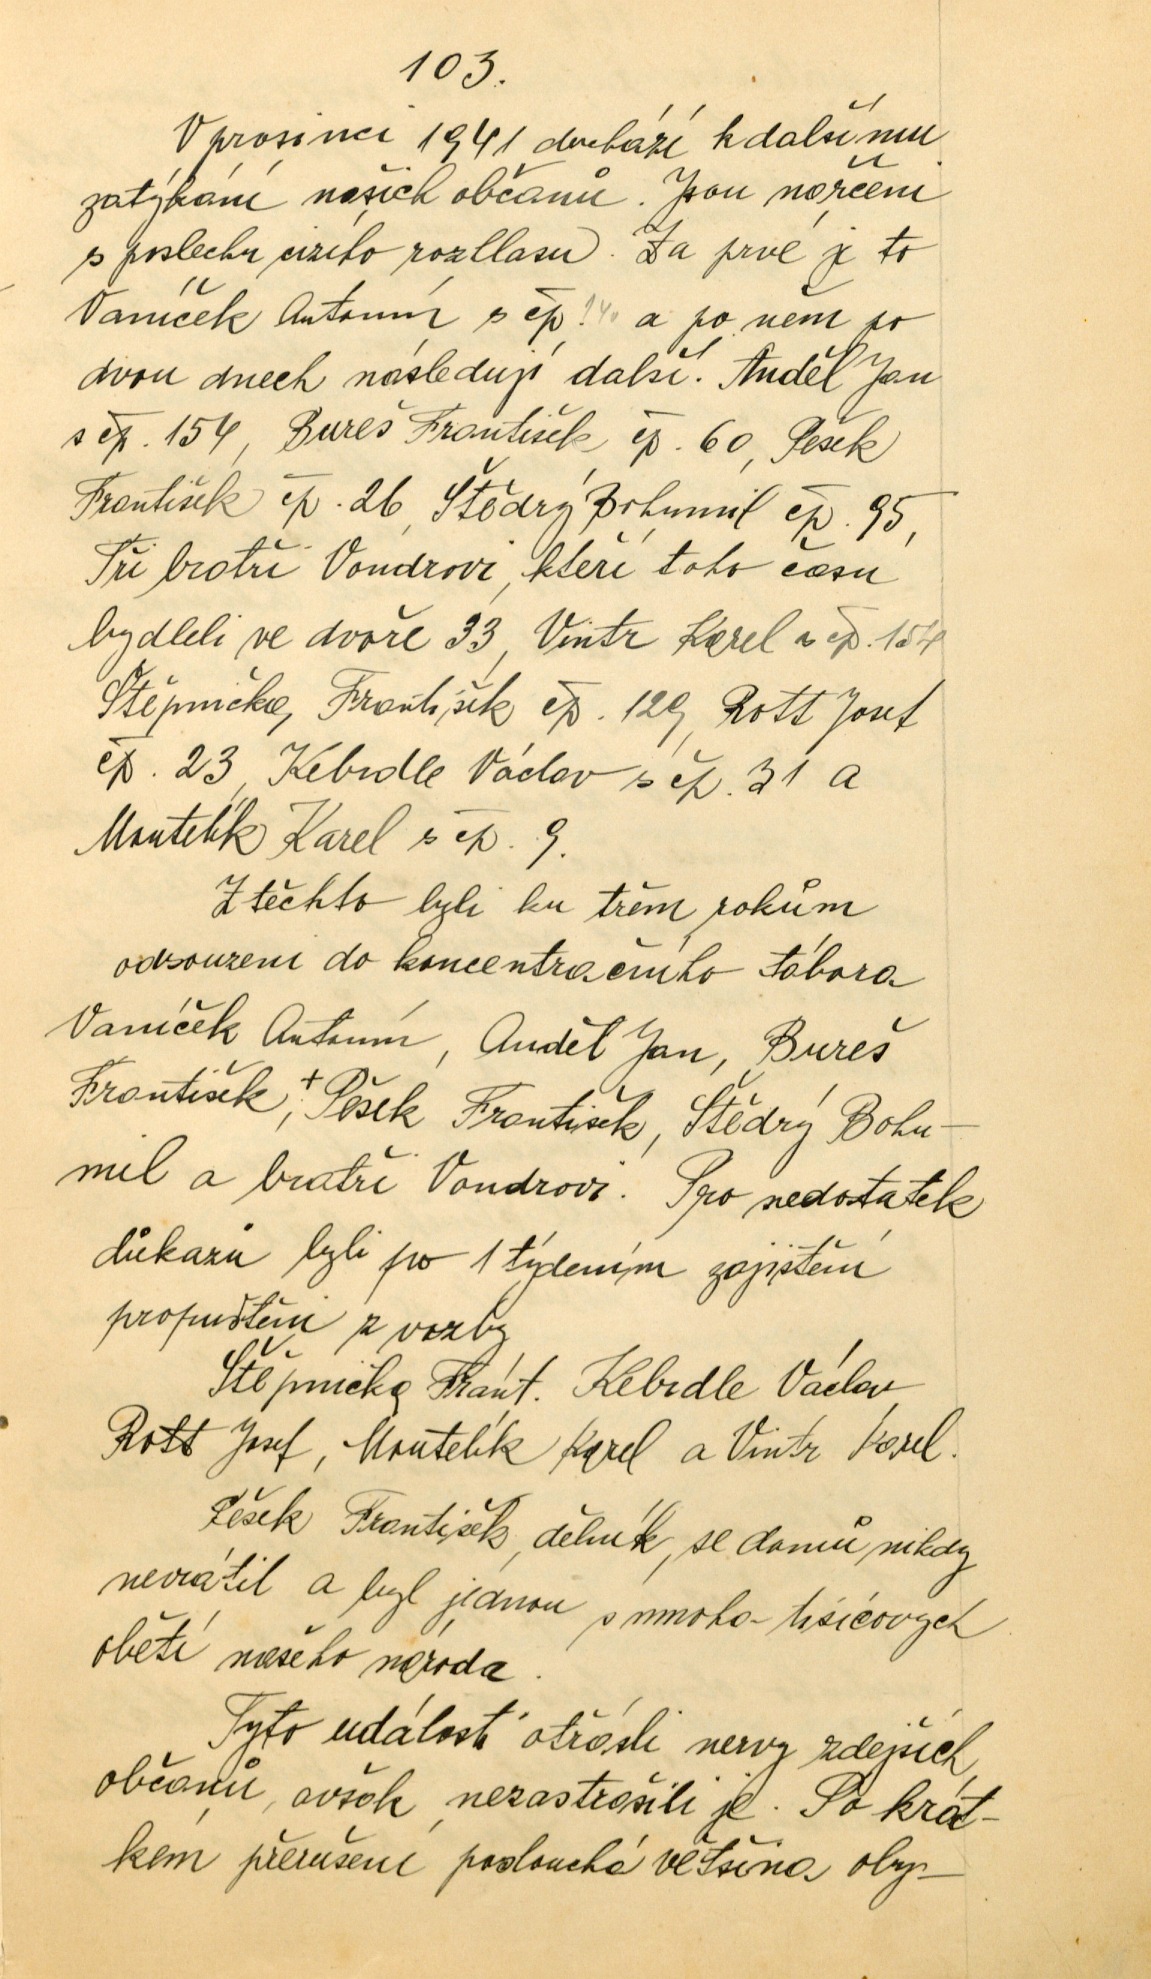 103.
V prosinci 1941 dochází k dalšímu
zatýkání našich občanů. Jsou nařčeni
s poslechu cizího rozhlasu. Za prvé je to
Vaníček Antonín s čp. a po něm po
dvou dnech následují další. Anděl Jan
s čp. 154, Bureš František čp. 60, Pěšek
František čp. 26, Štědrý Bohumil čp. 95,
Tři bratři Vondrovi, kteří toho času
bydleli ve dvoře 33, Vintr Karel s čp. 154
Štěpnička, František čp. 129, Rott Josef
čp. 23, Kebrdle Václav s čp. 31 a
Moutelík Karel s čp. 9.
Z těchto byli ku třem rokům
odsouzeni do koncentračního tábora
Vaníček Antonín, Anděl Jan, Bureš
František, + Pěšek František, Štědrý Bohu-
mil a bratři Vondrovi. Pro nedostatek
důkazů byli po 1 týdením zajištění
propuštěni z vazby
Štěpnička Frant. Kebrdle Václav
Rott Josef, Moutelík Karel a Vintr Karel.
Pěšek František, dělník, se domů nikdy
nevrátil a byl jednou s mnoho-tisícových
obětí našeho národa.
Tyto události otřásli nervy zdejších
občanů, avšak nezastrašili je. Po krát-
kém přerušení poslouchá většina oby-